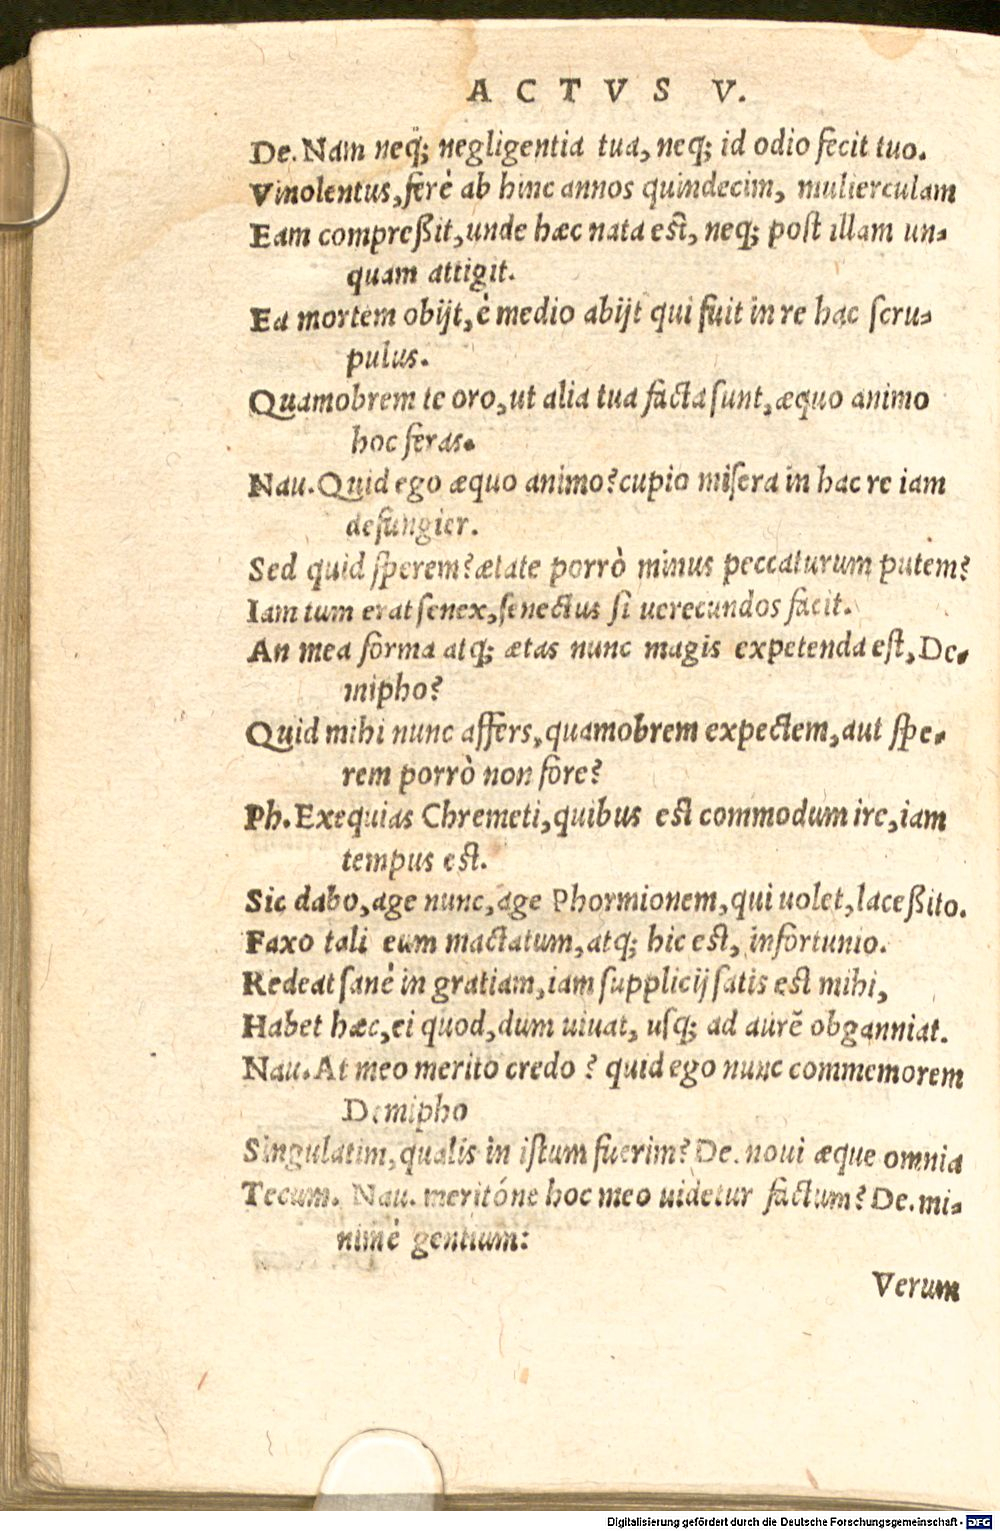 ACTVS V.
De. Nam neq̃; negligentia tua, neq; id odio fecit tuo.
Vinolentus, ferè ab hinc annos quindecim, mulierculam
Eam compreßit, unde hæc nata est, neq; post illam un-
quam attigit.
Ea mortem obijt, è medio abijt qui fuit in re hac scru-
pulus.
Quamobrem te oro, ut alia tua facta sunt, æquo animo
hoc feras.
Nau. Quid ego æquo animo? cupio misera in hac re iam
defungier.
Sed quid sperem? ætate porrò minus peccaturum putem?
Iam tum erat senex, senectus si uerecundos facit.
An mea forma atq; ætas nunc magis expetenda est, De-
mipho?
Quid mihi nunc affers, quamobrem expectem, aut spe-
rem porrò non fore?
Ph. Exequias Chremeti, quibus est commodum ire, iam
tempus est.
Sic dabo, age nunc, age Phormionem, qui uolet, laceßito.
Faxo tali eum mactatum, atq; hic est, infortunio.
Redeat sanè in gratiam, iam supplicij satis est mihi,
Habet hæc, ei quod, dum uiuat, usq; ad aurẽ obganniat.
Nau. At meo merito credo? quid ego nunc commemorem
Demipho
Singulatim, qualis in istum fuerim? De. noui æque omnia
Tecum. Nau. meritóne hoc meo uidetur factum? De. mi-
nimè gentium:
Verum
Digitalisierung gefördert durch die Deutsche Forschungsgemeinschaft - DFG